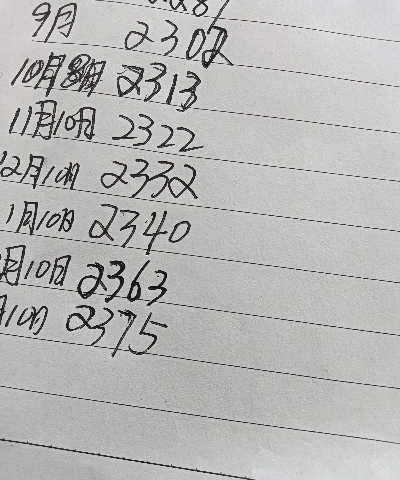 9月 2302
10月8日 2313
11月10日 2322
12月10日 2332
1月10日 2340
月10日 2363
月10日 2375